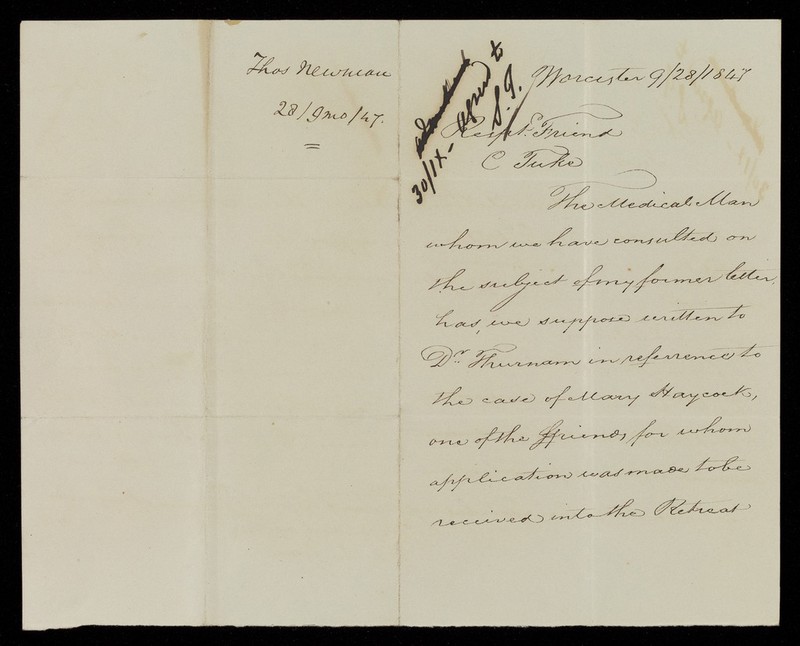 Thos Newman
28/9mo/47.
30/IX - agreed to
S. T.
Worcester 9/28/1847
Respd. Friend
C Tuke
The Medical Man
whom we have consulted on
the subject of my former letter
has, we suppose written to
Dr. Thurnam in referrence to
the case of Mary Haycock,
one of the ffriends for whom
application was made to be
received into the Retreat